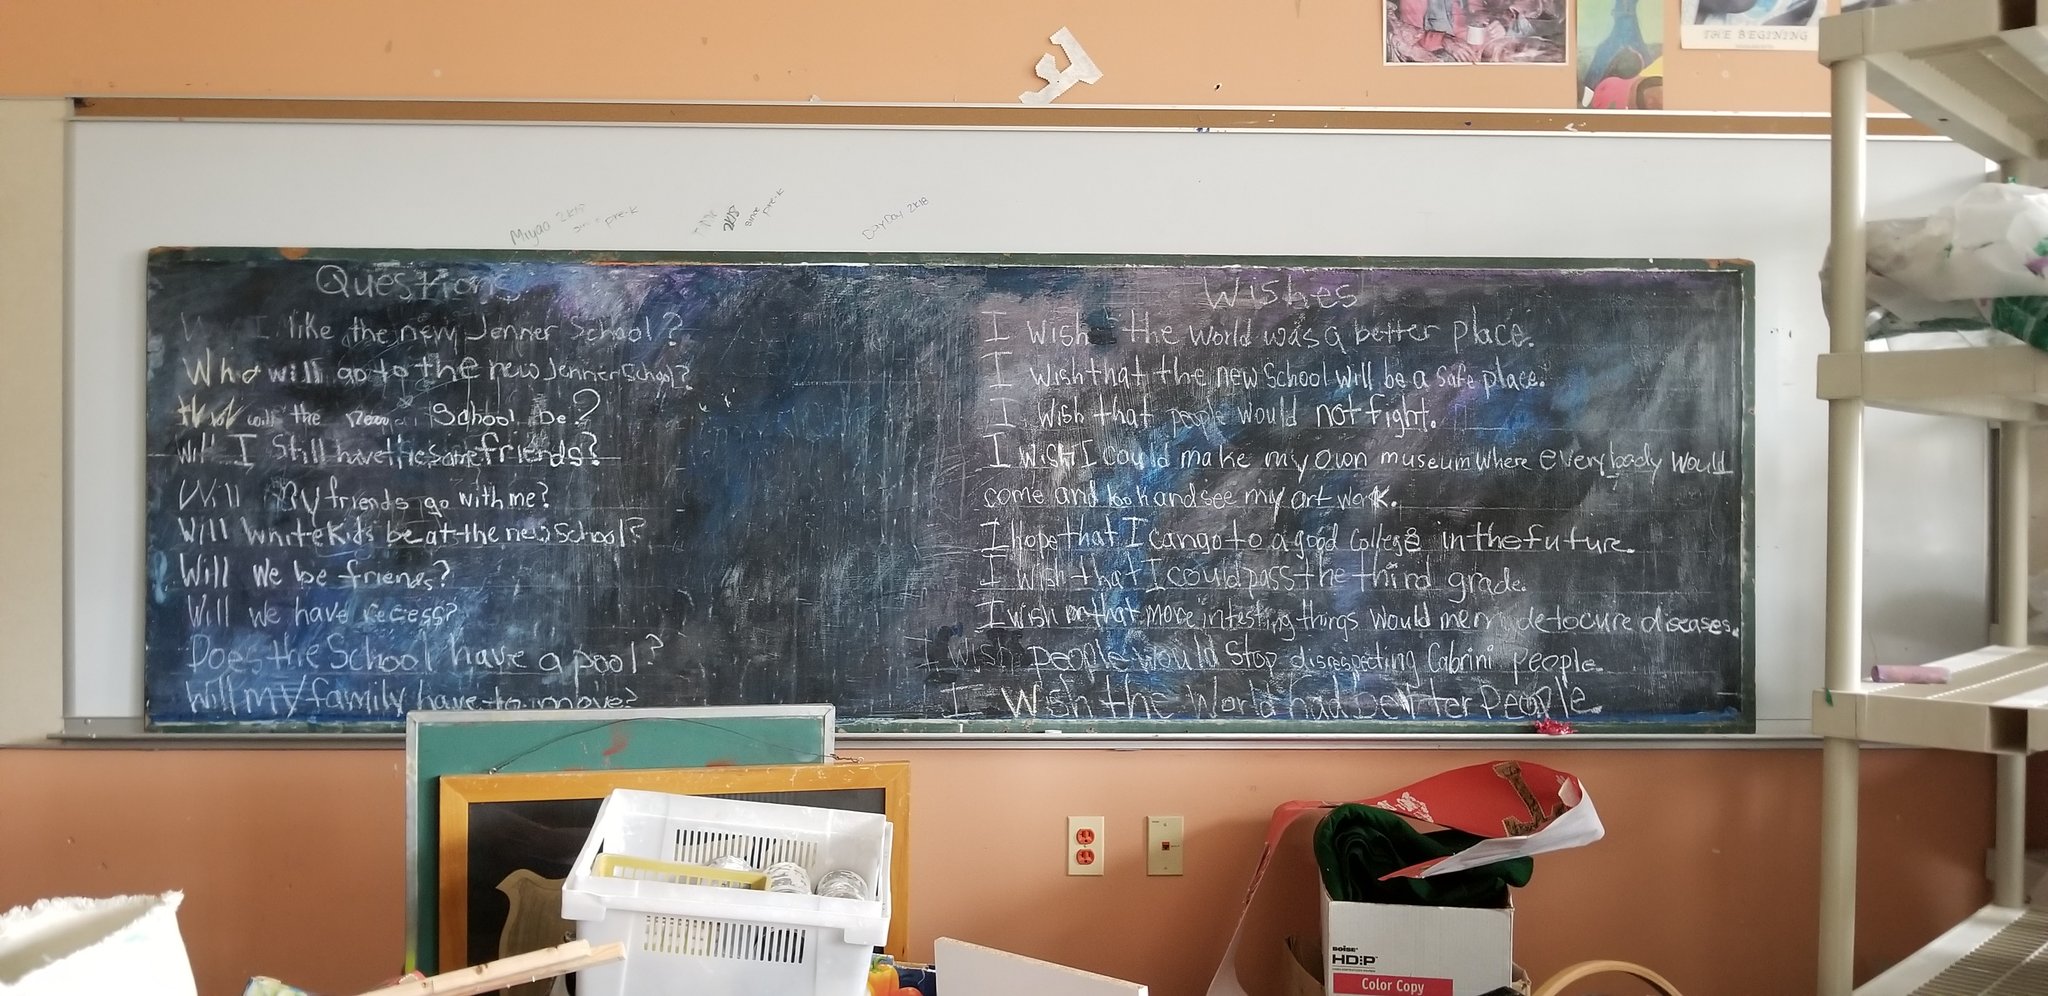 THE BEGINING
Miyao 2K18
since pre-k
2K18
since pre-k
DayDay 2K18
Questions
I like the new Jenner School?
Who will go to the new Jenner School?
will the School be?
Will I Still have the same friends?
Will My friends go with me?
Will white kids be at the new School?
Will we be friends?
Will we have recess?
Does the School have a pool?
Will my family have to move?
Wishes
I wish the world was a better place.
I wish that the new School will be a safe place.
I wish that people would not fight.
I wish I could make my own museum where everybody would
come and look and see my art work.
I hope that I can go to a good college in the future.
I wish that I could pass the third grade.
I wish that more intesting things would be to cure diseases.
I wish people would Stop disrespecting Cabrini people.
I wish the World had better People
BOISE
HD:P
Color Copy